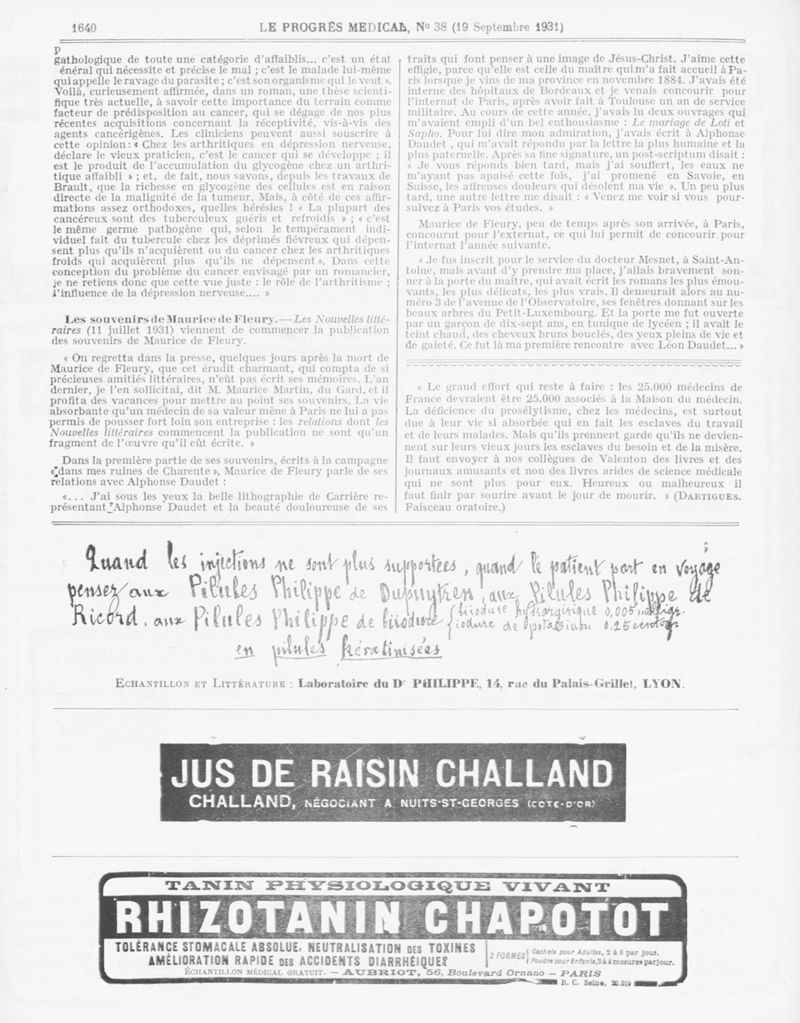 1640
LE PROGRÈS MEDICAL, No 38 (19 Septembre 1931)
p
gathologique de toute une catégorie d'affaiblis... c'est un état
énéral qui nécessite et précise le mal ; c'est le malade lui-même
qui appelle le ravage du parasite ; c'est son organisme qui le veut ».
Voilà, curieusement affirmée, dans un roman, une thèse scienti-
fique très actuelle, à savoir cette importance du terrain comme
facteur de prédisposition au cancer, qui se dégage de nos plus
récentes acquisitions concernant la réceptivité, vis-à-vis des
agents cancérigènes. Les cliniciens peuvent aussi souscrire à
cette opinion : « Chez les arthritiques en dépression nerveuse,
déclare le vieux praticien, c'est le cancer qui se développe ; il
est le produit de l'accumulation du glycogène chez un arthri-
tique affaibli » ; et, de fait, nous savons, depuis les travaux de
Brault, que la richesse en glycogène des cellules est en raison
directe de la malignité de la tumeur. Mais, à côté de ces affir-
mations assez orthodoxes, quelles hérésies ! « La plupart des
cancéreux sont des tuberculeux guéris et refroidis » ; « c'est
le même germe pathogène qui, selon le tempérament indi-
viduel fait du tubercule chez les déprimés fiévreux qui dépen-
sent plus qu'ils n'acquièrent ou du cancer chez les arthritiques
froids qui acquièrent plus qu'ils ne dépensent ». Dans cette
conception du problème du cancer envisagé par un romancier,
je ne retiens donc que cette vue juste : le rôle de l'arthritisme ;
l'influence de la dépression nerveuse.... »
Les souvenirs de Maurice de Fleury. — Les Nouvelles litté-
raires (11 juillet 1931) viennent de commencer la publication
des souvenirs de Maurice de Fleury.
« On regretta dans la presse, quelques jours après la mort de
Maurice de Fleury, que cet érudit charmant, qui compta de si
précieuses amitiés littéraires, n'eût pas écrit ses mémoires. L'an
dernier, je l'en sollicitai, dit M. Maurice Martin, du Gard, et il
profita des vacances pour mettre au point ses souvenirs. La vie
absorbante qu'un médecin de sa valeur mène à Paris ne lui a pas
permis de pousser fort loin son entreprise : les relations dont les
Nouvelles littéraires commencent la publication ne sont qu'un
fragment de l'œuvre qu'il eût écrite. »
Dans la première partie de ses souvenirs, écrits à la campagne
« dans mes ruines de Charente », Maurice de Fleury parle de ses
relations avec Alphonse Daudet :
«... J'ai sous les yeux la belle lithographie de Carrière re-
présentant Alphonse Daudet et la beauté douloureuse de ses
traits qui font penser à une image de Jésus-Christ. J'aime cette
effigie, parce qu'elle est celle du maître qui m'a fait accueil à Pa-
ris lorsque je vins de ma province en novembre 1884. J'avais été
interne des hôpitaux de Bordeaux et je venais concourir pour
l'internat de Paris, après avoir fait à Toulouse un an de service
militaire. Au cours de cette année, j'avais lu deux ouvrages qui
m'avaient empli d'un bel enthousiasme : Le mariage de Loti et
Sapho. Pour lui dire mon admiration, j'avais écrit à Alphonse
Daudet , qui m'avait répondu par la lettre la plus humaine et la
plus paternelle. Après sa fine signature, un post-scriptum disait :
« Je vous réponds bien tard, mais j'ai souffert, les eaux ne
m'ayant pas apaisé cette fois, j'ai promené en Savoie, en
Suisse, les affreuses douleurs qui désolent ma vie ». Un peu plus
tard, une autre lettre me disait : « Venez me voir si vous pour-
suivez à Paris vos études. »
Maurice de Fleury, peu de temps après son arrivée, à Paris,
concourut pour l'externat, ce qui lui permit de concourir pour
l'internat l'année suivante.
« Je fus inscrit pour le service du docteur Mesnet, à Saint-An-
toine, mais avant d'y prendre ma place, j'allais bravement son-
ner à la porte du maître, qui avait écrit les romans les plus émou-
vants, les plus délicats, les plus vrais. Il demeurait alors au nu-
méro 3 de l'avenue de l'Observatoire, ses fenêtres donnant sur les
beaux arbres du Petit-Luxembourg. Et la porte me fut ouverte
par un garçon de dix-sept ans, en tunique de lycéen ; il avait le
teint chaud, des cheveux bruns bouclés, des yeux pleins de vie et
de gaieté. Ce fut là ma première rencontre avec Léon Daudet... »
« Le grand effort qui reste à faire : les 25.000 médecins de
France devraient être 25.000 associés à la Maison du médecin.
La déficience du prosélytisme, chez les médecins, est surtout
due à leur vie si absorbée qui en fait les esclaves du travail
et de leurs malades. Mais qu'ils prennent garde qu'ils ne devien-
nent sur leurs vieux jours les esclaves du besoin et de la misère.
Il faut envoyer à nos collègues de Valenton des livres et des
journaux amusants et non des livres arides de science médicale
qui ne sont plus pour eux. Heureux ou malheureux il
faut finir par sourire avant le jour de mourir. » (DARTIGUES.
Faisceau oratoire.)
Quand les injections ne sont plus supportées, quand le patient part en voyage
pensez aux Pilules Philippe de Dupuytren, aux Pilules Philippe de
Ricord, aux Pilules Philippe de biiodure { biiodure hydrargirique 0,005 milligr.
iodure de potassium 0,25 centigr
en pilules kératinisées
ECHANTILLON ET LITTÉRATURE : Laboratoire du Dr PHILIPPE, 14, rue du Palais-Grillet, LYON.
JUS DE RAISIN CHALLAND
CHALLAND, NÉGOCIANT A NUITS-ST-GEORGES (COTE-D'OR)
TANIN PHYSIOLOGIQUE VIVANT
RHIZOTANIN CHAPOTOT
TOLÉRANCE STOMACALE ABSOLUE, NEUTRALISATION DES TOXINES
AMÉLIORATION RAPIDE DES ACCIDENTS DIARRHÉIQUES
2 FORMES { Cachets pour Adultes, 2 à 6 par jour.
Poudre pour Enfants, 2 à 4 mesures par jour.
ÉCHANTILLON MÉDICAL GRATUIT. — AUBRIOT, 56, Boulevard Ornano — PARIS
R. C. Seine, 30.019